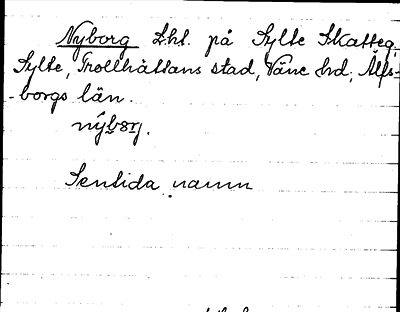 Nyborg Lht. på Sylte Skatteg.
Sylte, Trollhättans stad, Väne hd, Älfs-
-borgs län.
Sentida namn